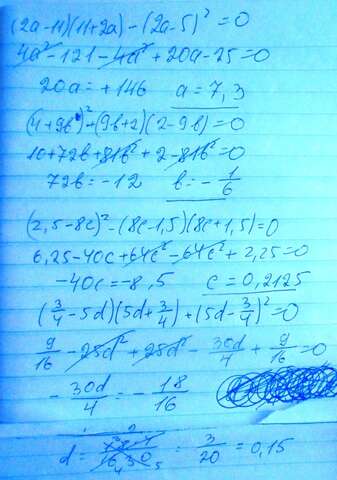 (2a-11)(11+2a)-(2a-5)²=0
4a²-121-4a²+20a-25=0
20a=+146 a=7,3
(4+9b)²+(9b+2)(2-9b)=0
10+72b+81b²+2-81b²=0
72b=-12 b=-1/6
(2,5-8c)²-(8c-1,5)(8c+1,5)=0
6,25-40c+64c²-64c²+2,25=0
-40c=-8,5 c=0,2125
(3/4-5d)(5d+3/4)+(5d-3/4)²=0
9/16-25d²+25d²-30d/4+9/16=0
-30d/4=-18/16
d= = 3/20 = 0,15